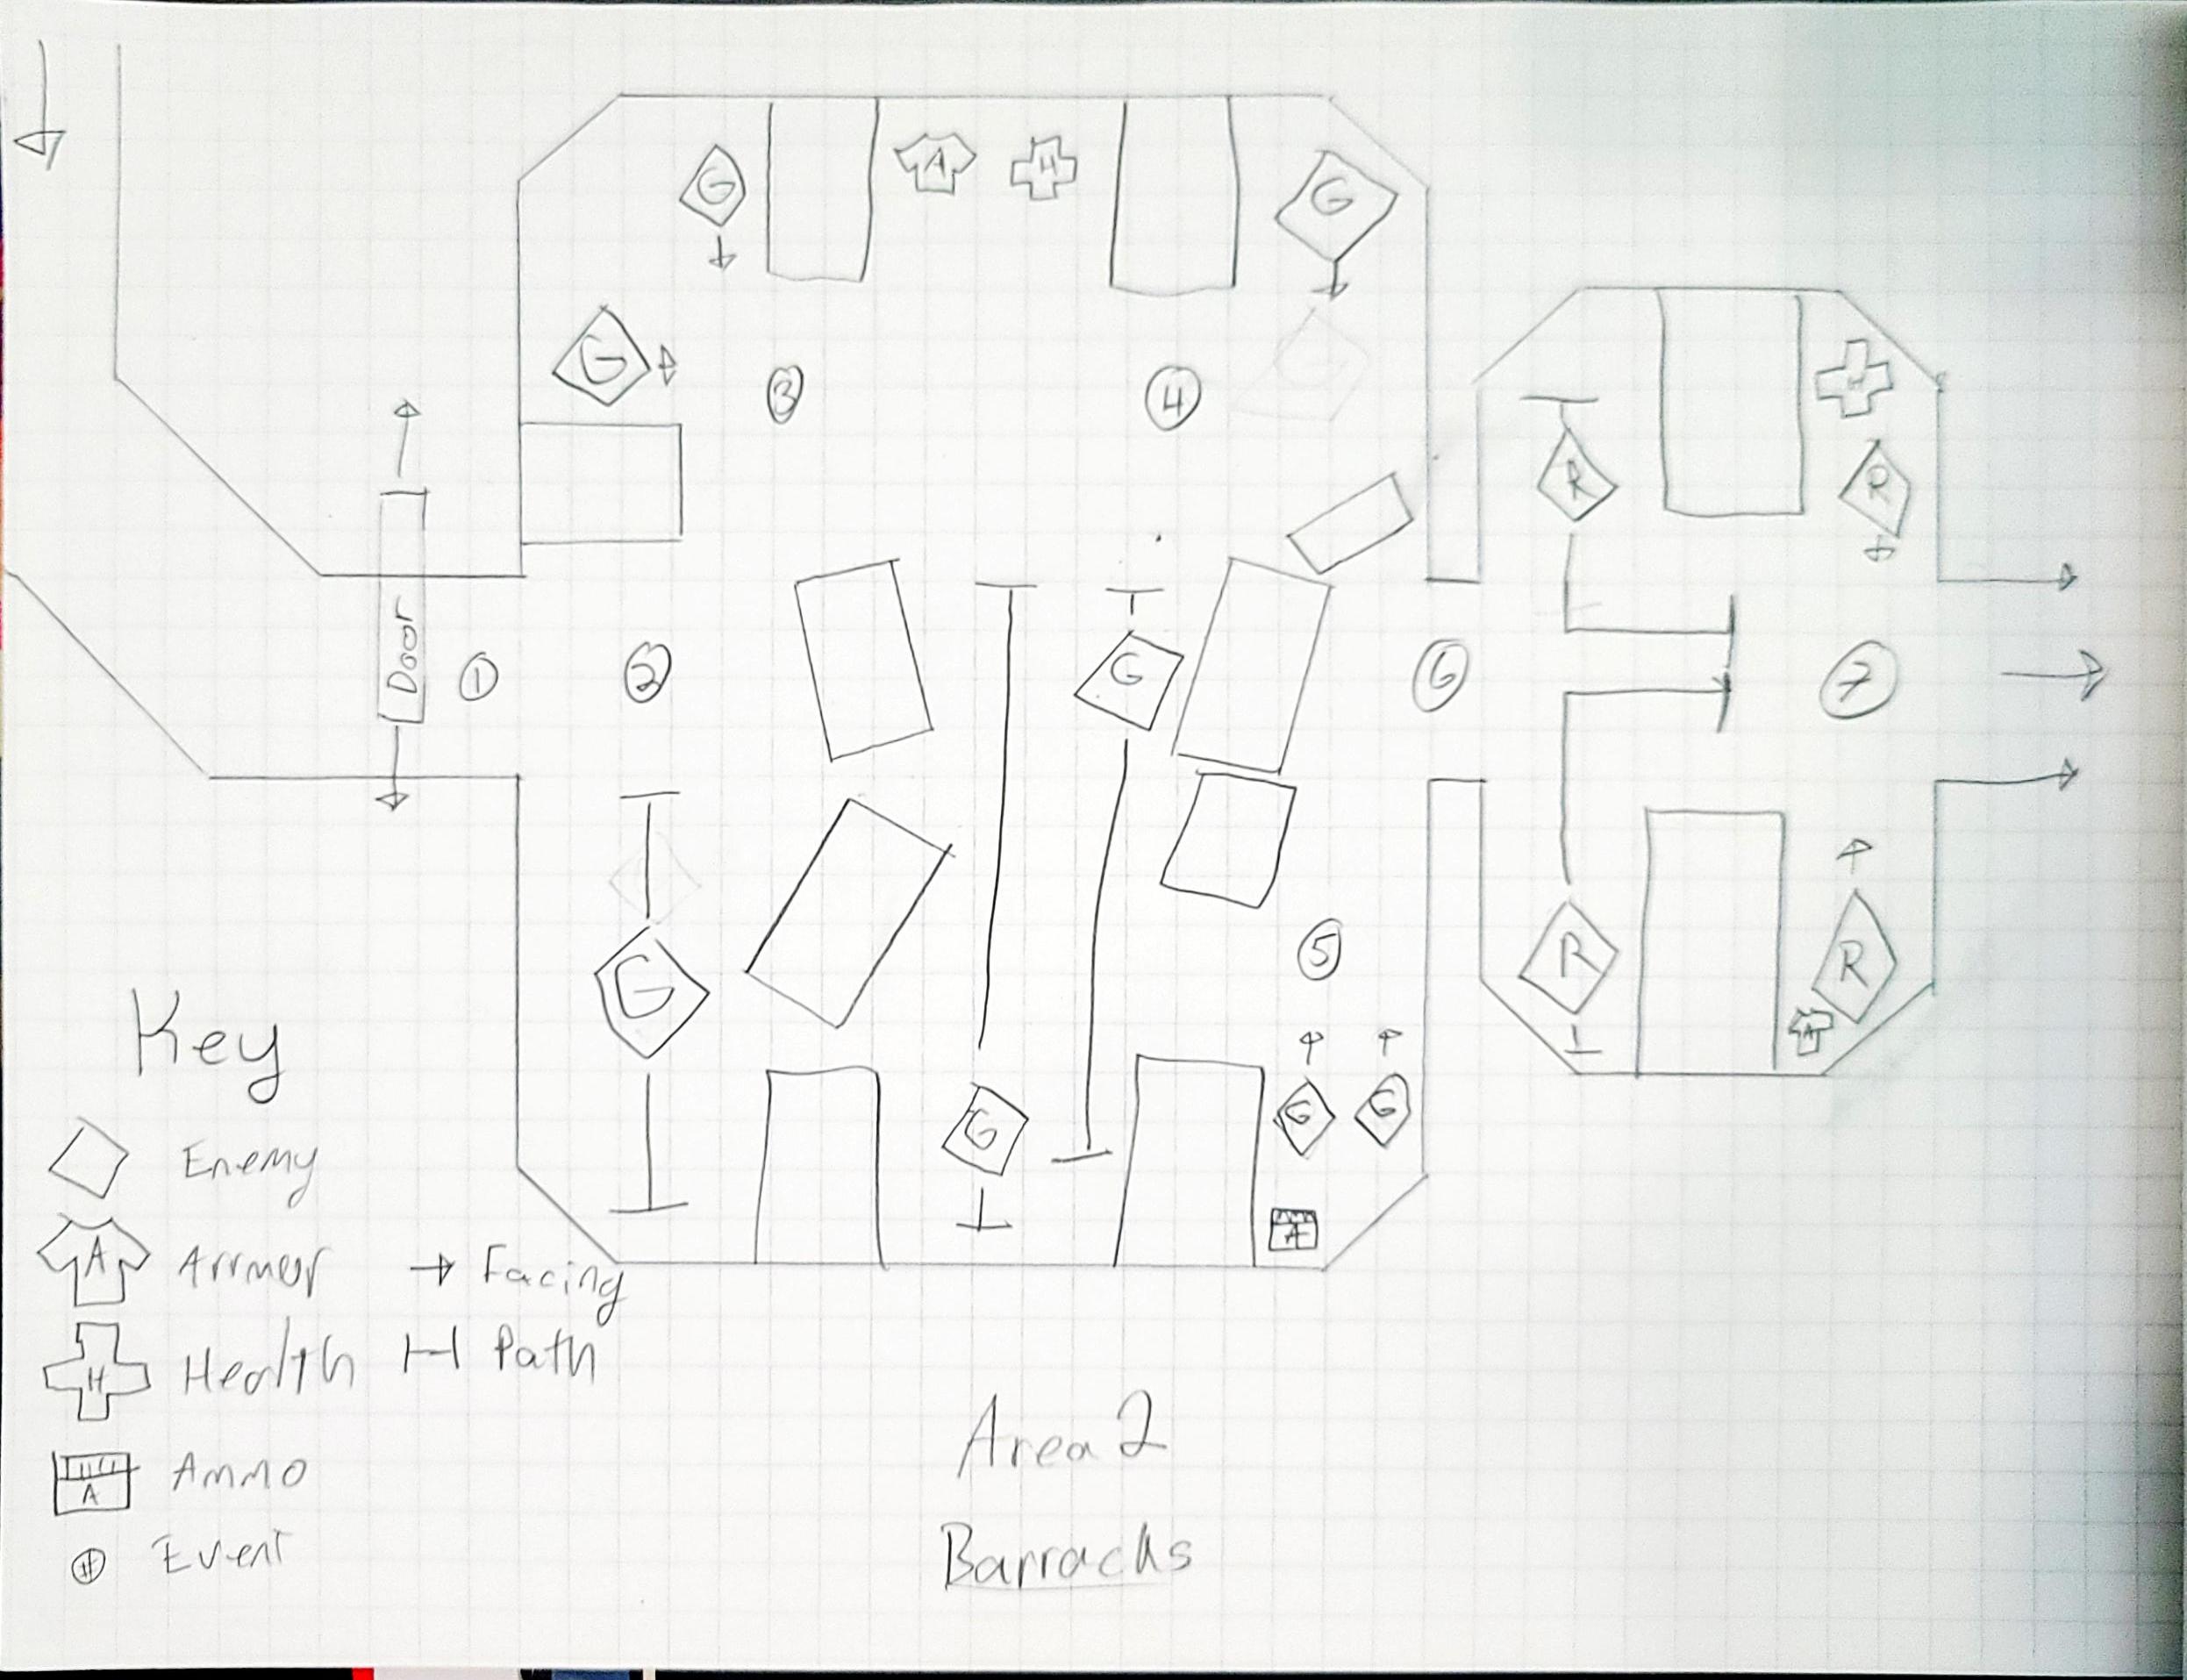 G
A
H
G
G
3
4
H
R
R
Door
1
2
G
6
7
G
5
R
R
A
G
G
G
A
Key
Enemy
A Arrmor → Facing
H Health Path
A Ammo
# Event
Area 2
Barracks